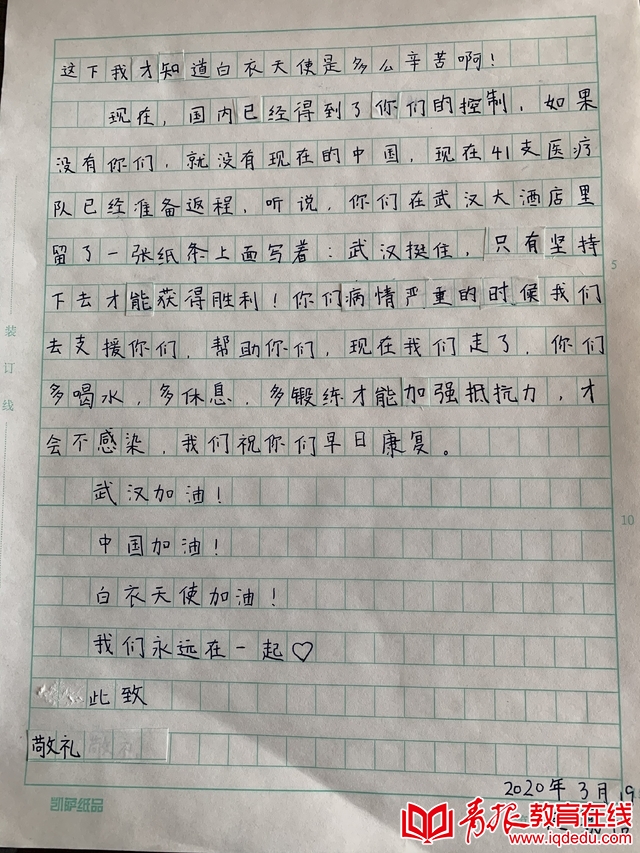 这下我才知道白衣天使是多么辛苦啊！
现在，国内已经得到了你们的控制，如果
没有你们，就没有现在的中国，现在41支医疗
队已经准备返程，听说，你们在武汉大酒店里
留了一张纸条上面写着：武汉挺住，只有坚持
下去才能获得胜利！你们病情严重的时候我们
去支援你们，帮助你们，现在我们走了，你们
多喝水，多休息，多锻练才能加强抵抗力，才
会不感染，我们祝你们早日康复。
武汉加油！
中国加油！
白衣天使加油！
我们永远在一起♡
此致
敬礼
2020年3月19
装订线
5
10
凯萨纸品
青报教育在线
www.iqdedu.com